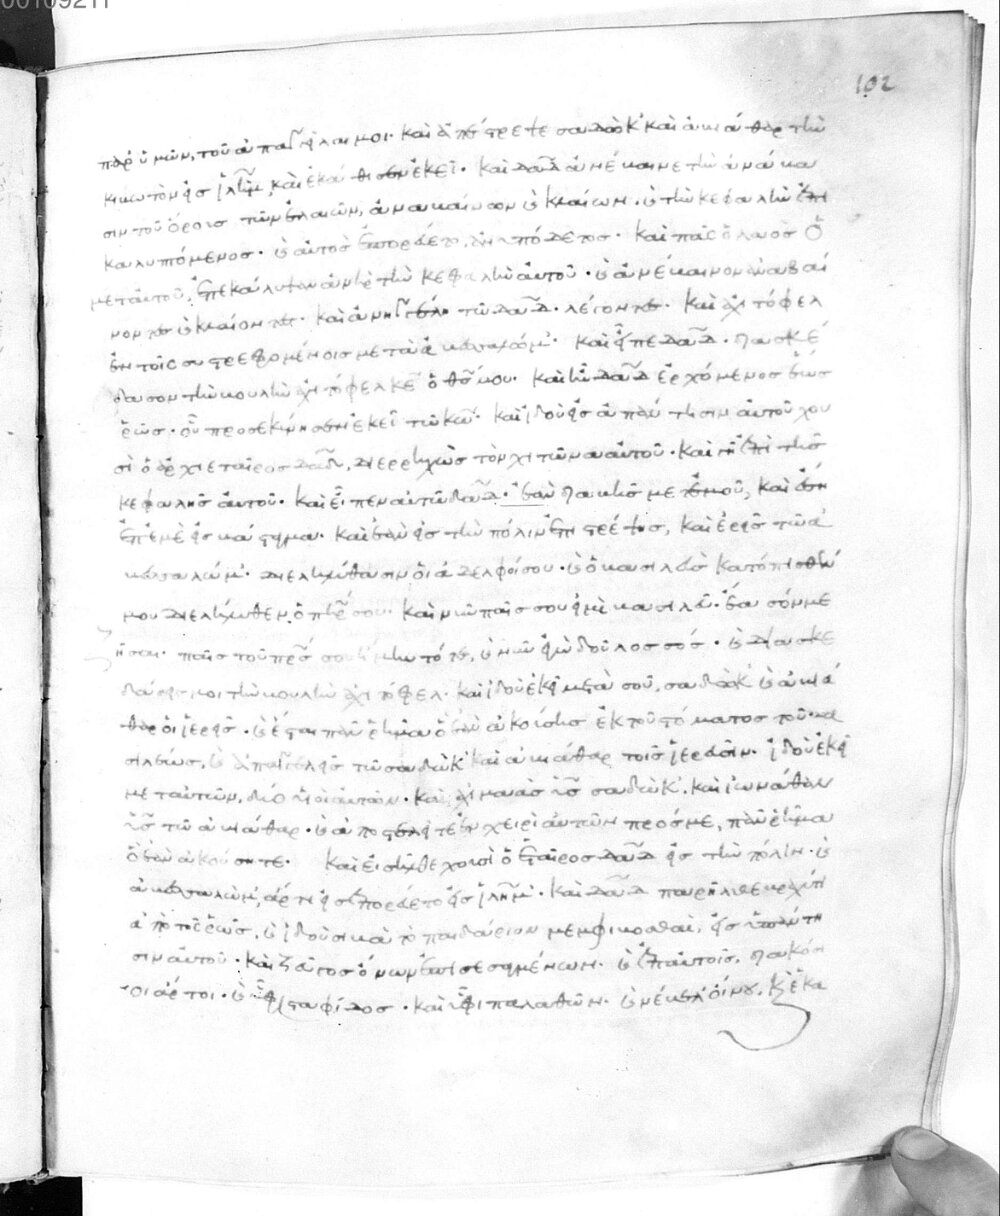 00109211
102
παρ' ὑμῶν, τοῦ ἀπαγγεῖλαί μοι. καὶ ἀπέστρεψε σαδὼκ καὶ ἀβιάθαρ τὴν
κιβωτὸν εἰς ἱλημ, καὶ ἐκάθισεν ἐκεῖ. καὶ δαδ ἀνέβαινε τὴν ἀνάβα
σιν τοῦ ὄρους τῶν ἐλαιῶν, ἀναβαίνων καὶ κλαίων. καὶ τὴν κεφαλὴν ἐπι
καλυπτόμενος. καὶ αὐτὸς ἐπορεύετο ἀνυπόδετος. καὶ πᾶς ὁ λαὸς ὁ
μετ' αὐτοῦ, ἐπεκάλυψεν ἀνὴρ τὴν κεφαλὴν αὐτοῦ. καὶ ἀνέβαινον ἀναβαί
νοντες καὶ κλαίοντες. καὶ ἀνηγγέλη τῷ δαδ λέγοντες. καὶ ἀχιτόφελ
ἐν τοῖς συστρεφομένοις μετὰ ἀβεσαλώμ. καὶ εἶπε δαδ. διασκέ
δασον τὴν βουλὴν ἀχιτόφελ κε ὁ θς μου. καὶ ἦν δαδ ἐρχόμενος ἕως
ῥὼς. οὗ προσεκύνησεν ἐκεῖ τῷ κω. καὶ ἰδοὺ εἰς ἀπάντησιν αὐτοῦ χου
σὶ ὁ ἀρχιεταῖρος δαδ, διερρηχὼς τὸν χιτῶνα αὐτοῦ. καὶ γῆ ἐπὶ τῆς
κεφαλῆς αὐτοῦ. καὶ εἶπεν αὐτῷ δαδ. ἐὰν διαβῇς μετ' ἐμοῦ, καὶ ἔση
ἐπ' ἐμὲ εἰς βάσταγμα. καὶ ἐὰν εἰς τὴν πόλιν ἐπιστρέψῃς, καὶ ἐρεῖς τῷ ἀ
βεσαλώμ. διεληλύθασιν οἱ ἀδελφοί σου. καὶ ὁ βασιλεὺς κατόπισθέν
μου διελήλυθεν ὁ πηρ σου. καὶ νῦν παῖς σου εἰμὶ βασιλεῦ. ἔασόν με
ζῆσαι. παῖς τοῦ πρς σου ἤμην τότε, καὶ νῦν ἐγὼ δοῦλος σός. καὶ διασκε
δάσεις μοι τὴν βουλὴν ἀχιτόφελ. καὶ ἰδοὺ ἐκεῖ μετὰ σοῦ, σαδὼκ καὶ ἀβιά
θαρ οἱ ἱερεῖς. καὶ ἔσται πᾶν ῥῆμα ὃ ἐὰν ἀκούσῃς ἐκ τοῦ στόματος τοῦ βα
σιλέως, καὶ ἀπαγγελεῖς τῷ σαδὼκ καὶ ἀβιάθαρ τοῖς ἱερεῦσιν. ἰδοὺ ἐκεῖ
μετ' αὐτῶν, δύο υἱοὶ αὐτῶν. καὶ ἀχιμαὰς υἱὸς σαδὼκ, καὶ ἰωνάθαν
υἱὸς τῷ ἀβιάθαρ. καὶ ἀποστελεῖτε ἐν χειρὶ αὐτῶν πρός με, πᾶν ῥῆμα
ὃ ἐὰν ἀκούσητε. καὶ εἰσῆλθε χουσὶ ὁ ἑταῖρος δαδ εἰς τὴν πόλιν. καὶ
ἀβεσαλὼμ, ἄρτι εἰσεπορεύετο εἰς ἱλημ. καὶ δαδ παρῆλθε βραχύ τι
ἀπὸ τῆς ῥὼς, καὶ ἰδοὺ σιβὰ τὸ παιδάριον μεμφιβοσθαὶ, εἰς ἀπάντη
σιν αὐτοῦ. καὶ ζεῦγος ὄνων ἐπισεσαγμένων. καὶ ἐπ' αὐτοῖς, διακόσι
οι ἄρτοι. καὶ οιφι σταφίδος. καὶ οιφι παλαθῶν. καὶ νέβελ οἴνου. καὶ εἶπε βα